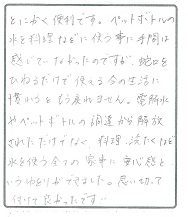 とにかく便利です。ペットボトルの
水を料理などに使う事に手間は
感じていなかったのですが、蛇口を
ひねるだけで使える今の生活に
慣れるともう戻れません。電解水
やペットボトルの調達から解放
されただけでなく、料理、洗たくなど
水を使う全ての家事に安心感と
いうゆとりができました。思い切って
付けて良かったです!!